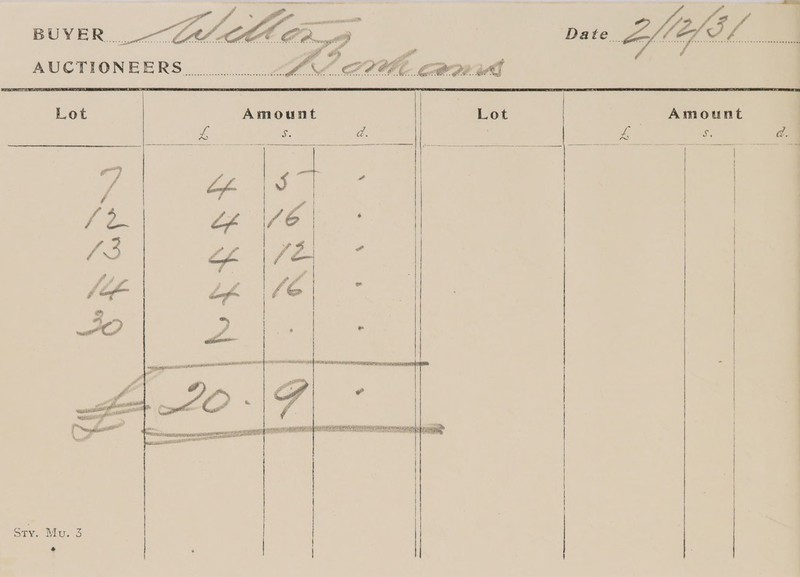 BUYER Wilton Date 2/12/31
AUCTIONEERS Bonhams
Lot Amount Lot Amount
£ s. d. £ s. d.
7 4 5 -
12 4 16 -
13 4 12 -
14 4 16 -
30 2 - -
£ 20 . 9 -
STY. MU. 3